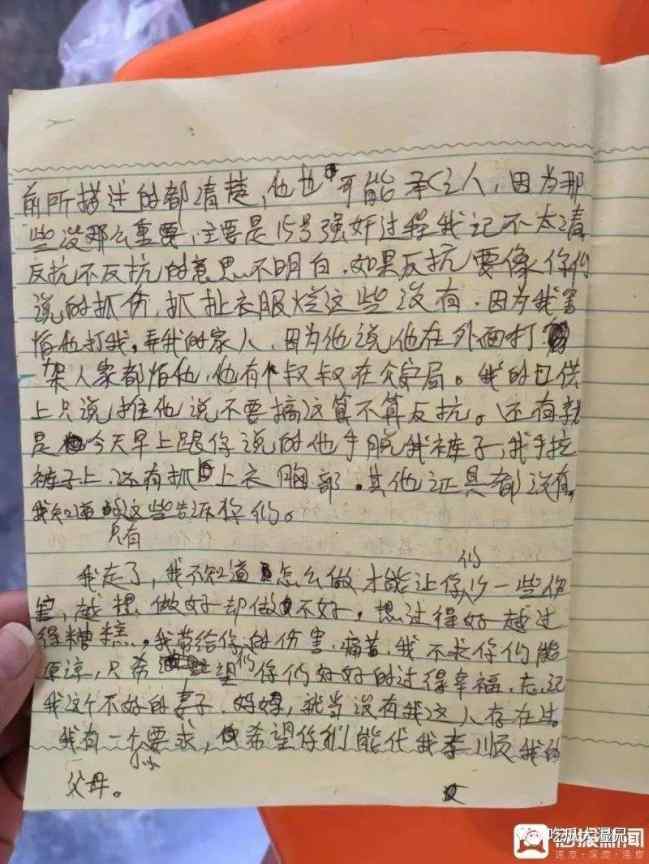 前所描述的都清楚，他也可能承认，因为那
些没那么重要，主要是15号强奸过程我记不太清
反抗不反抗的意思不明白。如果反抗要像你们
说的抓伤，抓扯衣服烂这些没有。因为我害
怕他打我，弄我的家人，因为他说，他在外面打
架人家都怕他，他有个叔叔在公安局。我的口供
上只说推他说不要搞这算不算反抗。还有就
是今天早上跟你说的他手脱我裤子，我手拉
裤子上，还有抓上衣胸部。其他证具都没有，
我知道的只有这些告诉你们。
我走了，我不知道怎么做才能让你们少一些伤
害，越想做好却做不好，想过得好越过
得糟糕。我带给你的伤害、痛苦，我不求你们能
原谅，只希望你们好好的过得幸福，忘记
我这个不好的妻子、妈妈，就当没有我这人存在过。
我有一个小要求，希望你们能代我孝顺我的
父母。
吃瓜长湿兄